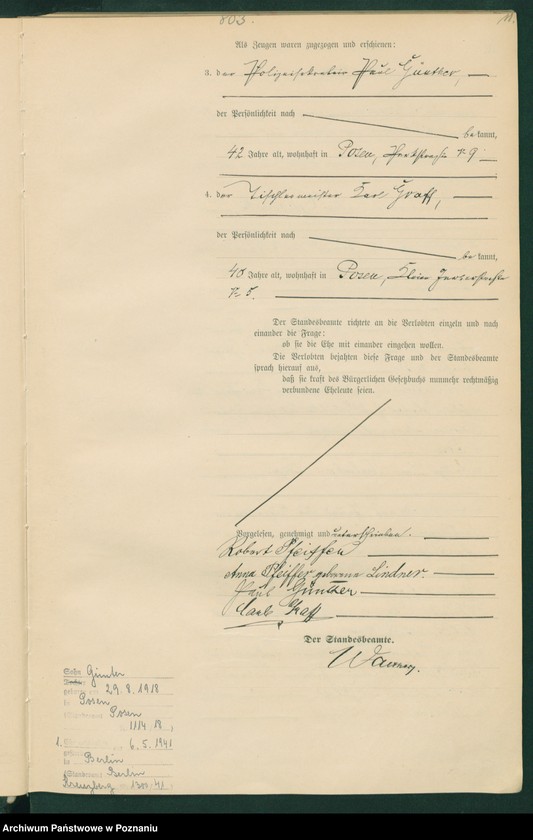 803.
Als Zeugen waren zugezogen und erschienen:
3. der Polizeisekretär Paul Günther,
der Persönlichkeit nach
bekannt,
42 Jahre alt, wohnhaft in Posen, № 9
4. der Tischlermeister Karl Graff,
der Persönlichkeit nach
bekannt,
40 Jahre alt, wohnhaft in Posen, Kleine
№ 5.
Der Standesbeamte richtete an die Verlobten einzeln und nach
einander die Frage:
ob sie die Ehe mit einander eingehen wollen.
Die Verlobten bejahten diese Frage und der Standesbeamte
sprach hierauf aus,
daß sie kraft des Bürgerlichen Gesetzbuchs nunmehr rechtmäßig
verbundene Eheleute seien.
Vorgelesen, genehmigt und unterschrieben.
Robert Pfeiffer
Anna Pfeiffer geborene Lindner.
Paul Günther
Carl Graff
Der Standesbeamte.
Sohn Günter
29.8.1918
in Posen
Posen
1114 18
1. 6.5.1941
in Berlin
Berlin
Kreuzberg 1300 41
Archiwum Państwowe w Poznaniu